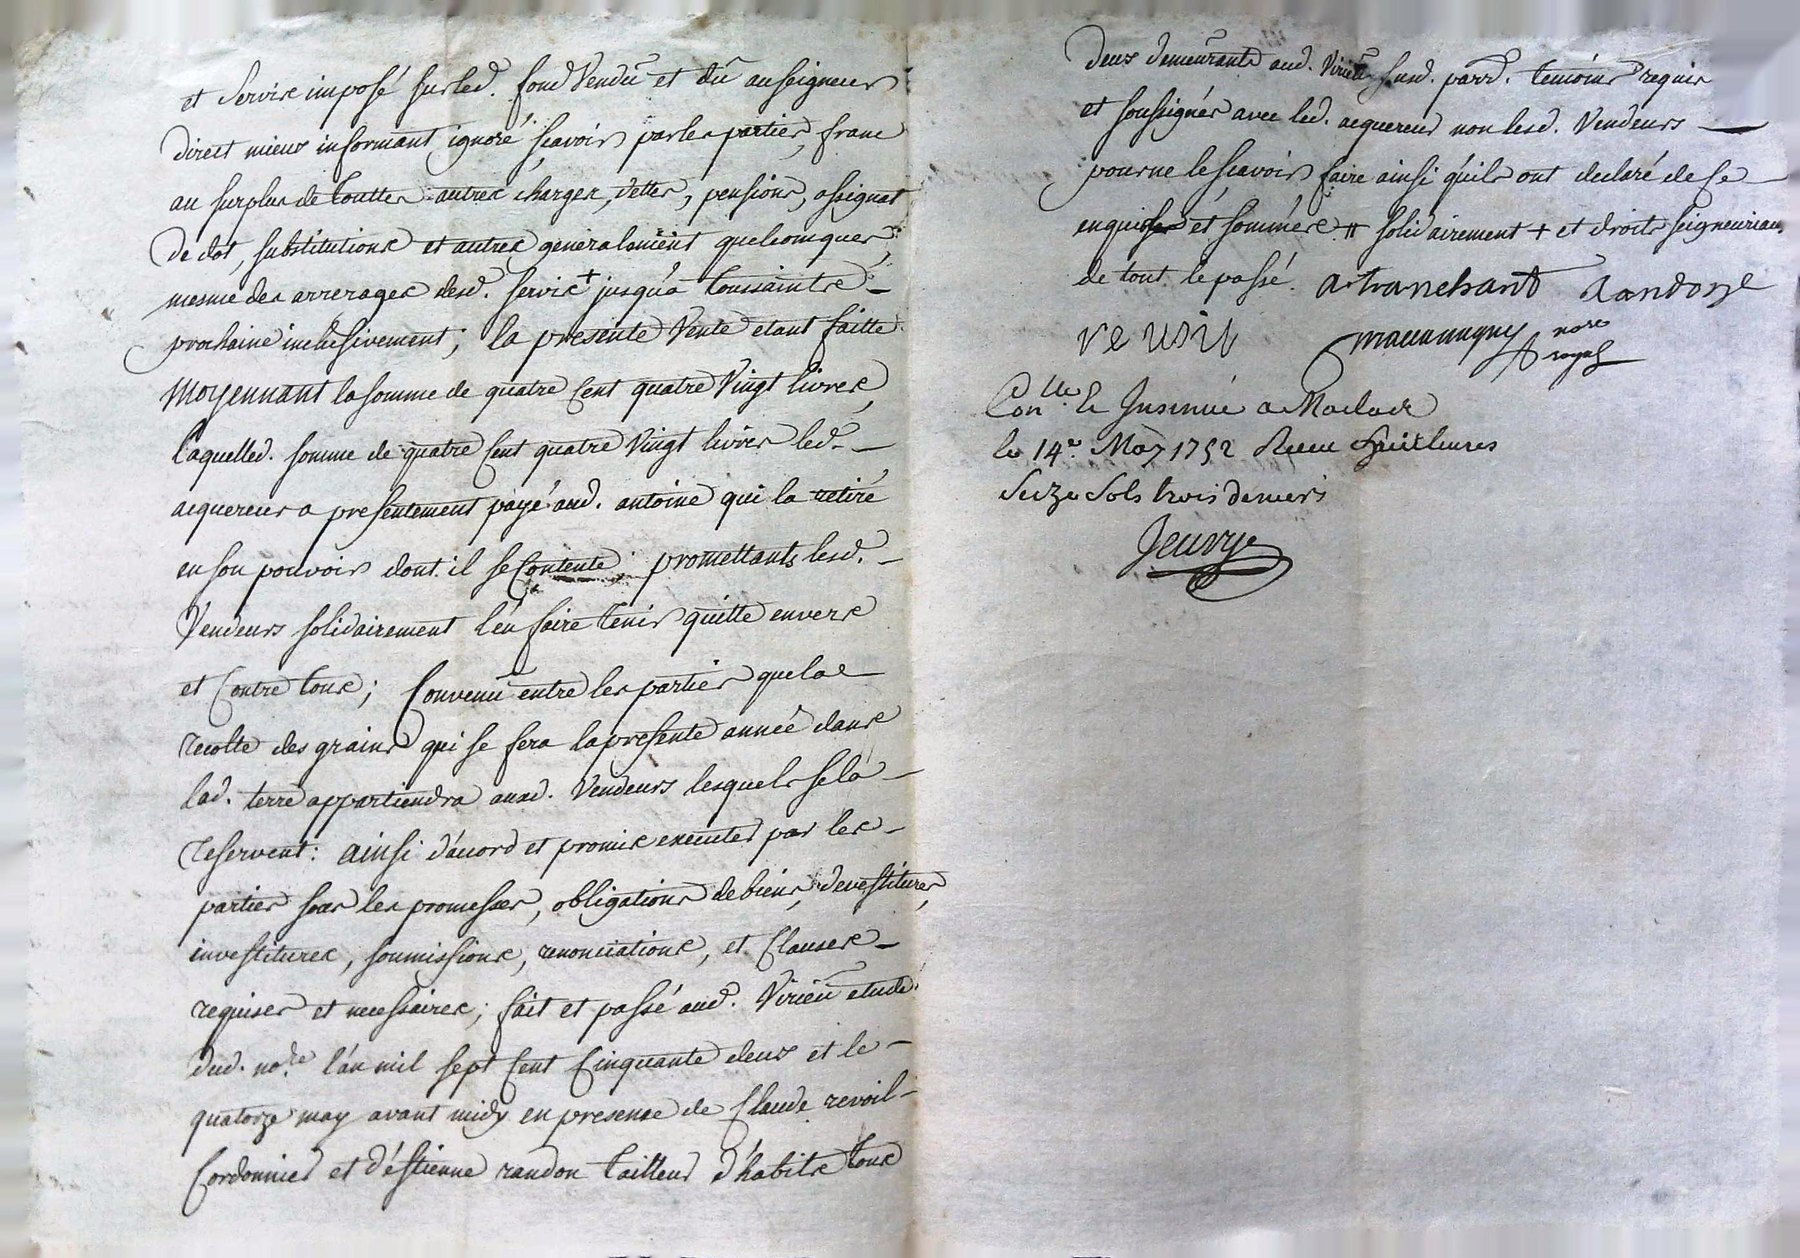 et servis imposé sur led. fond vendu et dû au seigneur
direct mieux informant ignoré sçavoir par les parties, franc
au surplus de touttes autres charges, dettes, pensions, assignat
de dot, substitutions et autres généralement quelconques,
mesme des arrerages desd. servis + jusqu'a toussaints
prochaine inclusivement; la presente vente etant faitte
moyennant la somme de quatre cent quatre vingt livres,
laquelled. somme de quatre cent quatre vingt livres led.
acquereur a presentement payé aud. antoine qui la retiré
en son pouvoir dont il se contente promettants lesd.
vendeurs solidairement l'en faire tenir quitte envers
et contre tous; convenu entre les parties que la
recolte des grains qui se fera la presente année dans
lad. terre appartiendra auxd. vendeurs lesquels se la
reservent: ainsi d'accord et promis executer par les
parties sous les promesses, obligations de biens, devestitures,
investitures, soumissions, renonciations, et clauses
requises et necessaires; fait et passé aud. virieu etude
dud. no.re l'an mil sept cent cinquante deux et le
quatorze may avant midy en presence de claude revoil
cordonnier et d'estienne randon tailleur d'habits tous
deux demeurants aud. virieu susd. parr. temoins requis
et soussignés avec led. acquereur non lesd. vendeurs
pour ne le sçavoir faire ainsi qu'ils ont declaré de ce
enquis et sommés # solidairement + et droits seigneuriaux
de tout le passé. a tranchant Randon
revoil nore
royal
Con.lle & Insinué a
le 14.e May 1752 Receu huit livres
seize sols trois deniers